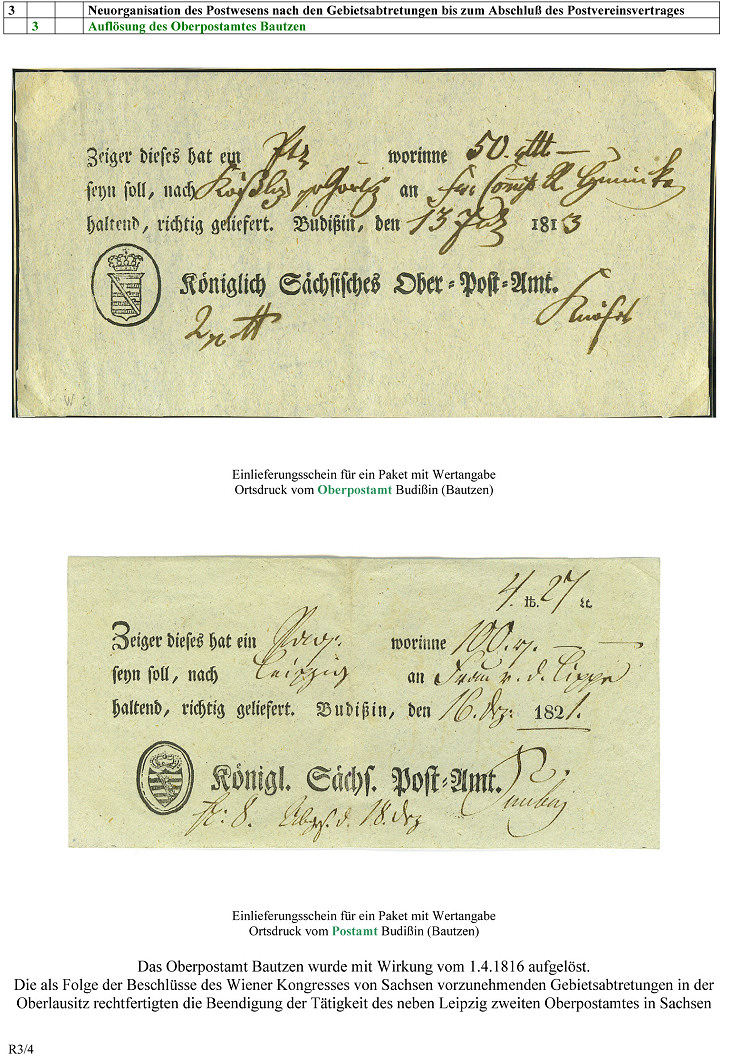 3 Neuorganisation des Postwesens nach den Gebietsabtretungen bis zum Abschluß des Postvereinsvertrages
3 Auflösung des Oberpostamtes Bautzen
Zeiger dieses hat ein worinne 50.
seyn soll, nach an
haltend, richtig geliefert. Budißin, den 13 1813
Königlich Sächsisches Ober-Post-Amt.
Einlieferungsschein für ein Paket mit Wertangabe
Ortsdruck vom Oberpostamt Budißin (Bautzen)
4. lb. 27 Lt.
Zeiger dieses hat ein worinne 100.
seyn soll, nach Leipzig an Frau v. d. Lippe
haltend, richtig geliefert. Budißin, den 16. Dez: 1821.
Königl. Sächs. Post-Amt.
8. d. 18. Dez
Einlieferungsschein für ein Paket mit Wertangabe
Ortsdruck vom Postamt Budißin (Bautzen)
Das Oberpostamt Bautzen wurde mit Wirkung vom 1.4.1816 aufgelöst.
Die als Folge der Beschlüsse des Wiener Kongresses von Sachsen vorzunehmenden Gebietsabtretungen in der
Oberlausitz rechtfertigten die Beendigung der Tätigkeit des neben Leipzig zweiten Oberpostamtes in Sachsen
R3/4